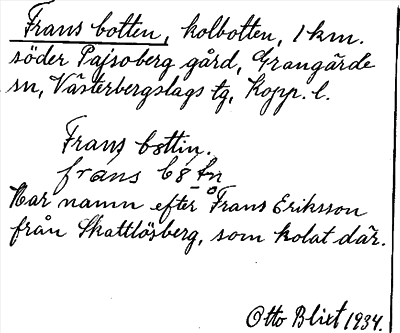 Frans botten, kolbotten, 1 km.
söder Pajsoberg gård, Grangärde
sn, Västerbergslags tg, Kopp. l.
Frans bottin.
Har namn efter Frans Eriksson
från Skattlösberg, som kolat där.
Otto Blixt 1934.